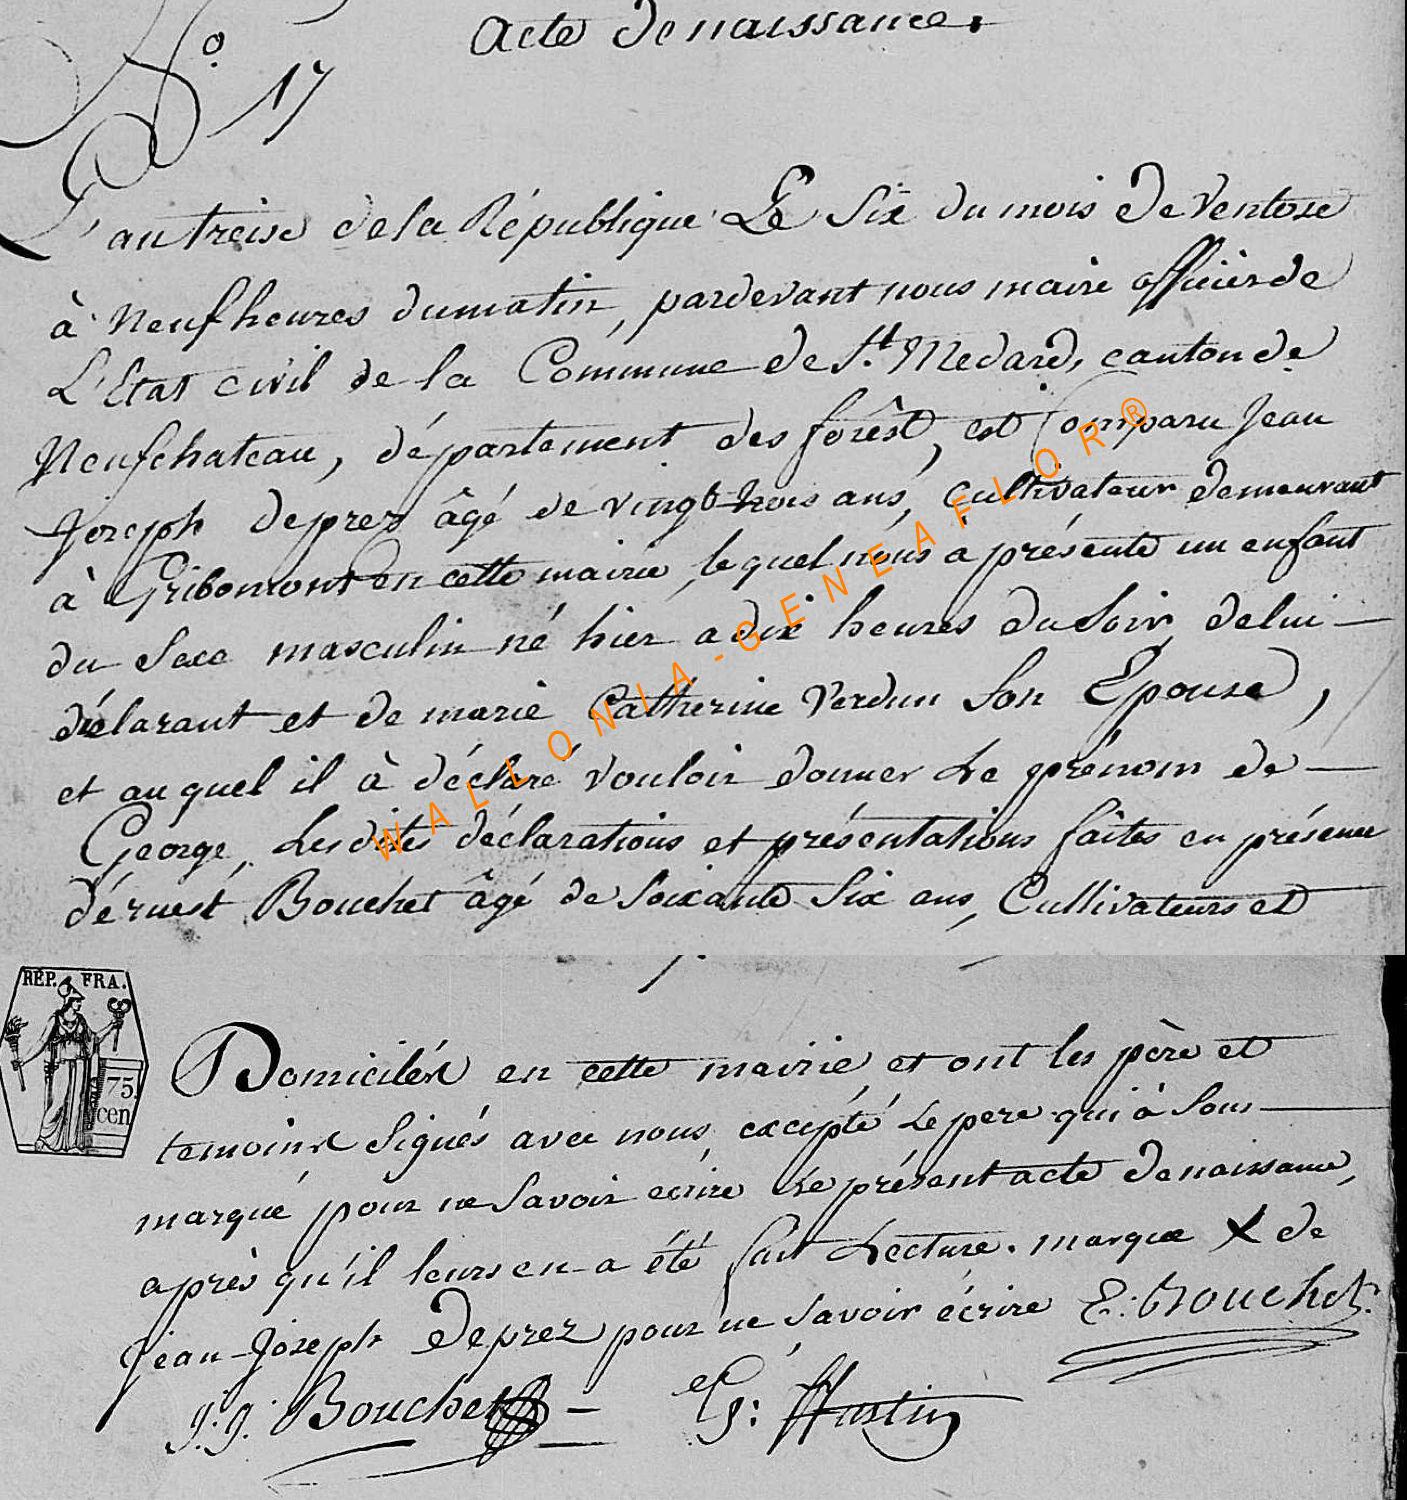 Acte de naissance.
No. 17
L'an treise de la République Le Six du mois De Ventose
à Neuf heures du matin, pardevant nous maire officier de
L'Etat civil de la Commune de St. Medard, canton de
Neufchateau, département des forêst, est Comparu Jean
Joseph deprez âgé de vingt trois ans, cultivateur demeurant
à Gribomont en cette mairie, lequel nous a présenté un enfant
du Sexe masculin né hier a dix heures du Soir, de lui
déclarant et de marie Catherine Verdun Son Epouse,
et auquel il à déclaré vouloir donner Le prénom de
George, Lesdites déclarations et présentations faites en présence
d'érnest Bouchet âgé de Soixante Six ans, Cultivateurs et
REP. FRA.
75.
cen
Domiciliés en cette mairie, et ont les père et
temoins Signés avec nous, excépté Le pere qui à Sous
marqué pour ne Savoir écrire Le présent acte De naissance,
après qu'il leurs en a été fait Lecture. marque X de
Jean-Joseph Deprez pour ne Savoir écrire E: Bouchet.
J. J. Bouchet G:
WALLONIA-GENEAFLOR®